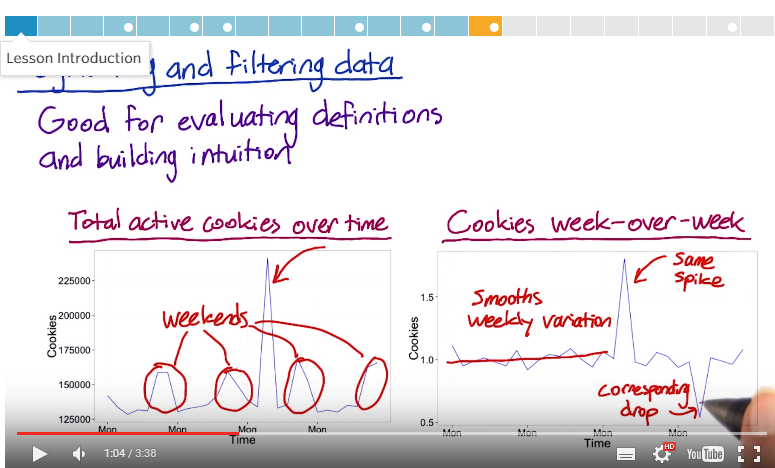 Lesson Introduction
and filtering data
Good for evaluating definitions
and building intuition
Total active cookies over time
Cookies week-over-week
225000
200000
175000
150000
125000
Cookies
weekends
Mon
Mon
Mon
Mon
Time
1.5
1.0
0.5
Cookies
Same
spike
Smooths
weekly variation
corresponding
drop
Mon
Mon
Mon
Mon
Time
1:04 / 3:38
HD
YouTube